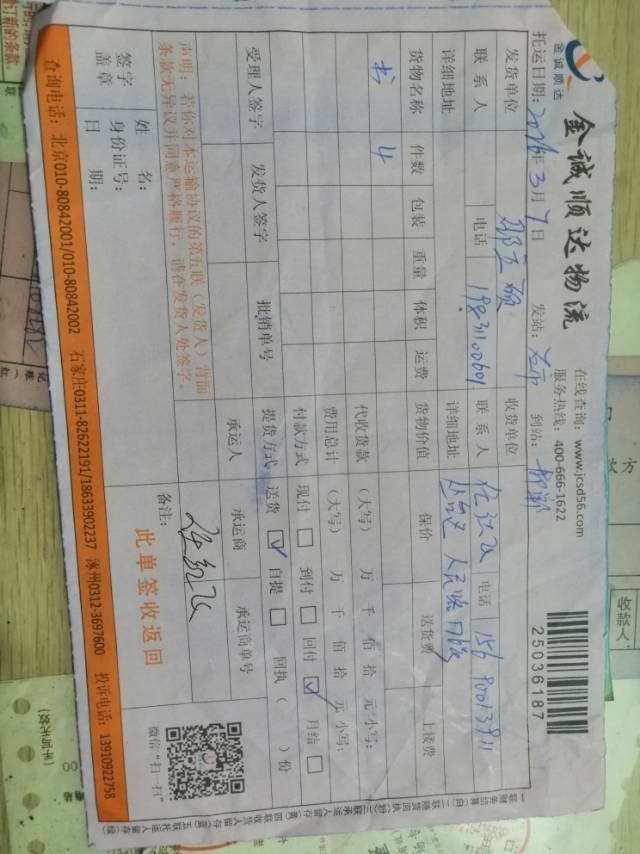 金诚顺达
金诚顺达物流
在线查询：www.jcsd56.com
服务热线：400-666-1622
25036187
托运日期：2016年3月7日 发站： 到站：邯郸
发货单位 收货单位
联系人 电话 19831100601 联系人 任红飞 电话 156 90013911
详细地址 详细地址
货物名称 件数 包装 重量 体积 运费 货物价值 保价 送货费 上楼费
书 4
代收货款 （大写） 万 仟 佰 拾 元 小写：
费用总计 （大写） 万 仟 佰 拾 元 小写：
付款方式 现付 □ 到付 □ 回付 ☑ 月结 □
提货方式 送货 ☑ 自提 □ 回执（ ）份
受理人签字 发货人签字 批销单号 承运人 承运商 承运商单号
声明：若你对本运输协议的第五联（发货人）背面
条款无异议并同意严格履行，请在发货人处签字。
签字
盖章
姓 名：
身份证号：
日 期：
备注：
任红飞
此单签收返回
微信“扫一扫”
查询电话：北京010-80842001/010-80842002 石家庄0311-82622191/18633902237 涿州0312-3697600 投诉电话：13910922758
收款人